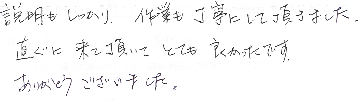 説明もしっかり、作業も丁寧にして頂きました。
直ぐに来て頂いてとても良かったです。
ありがとうございました。